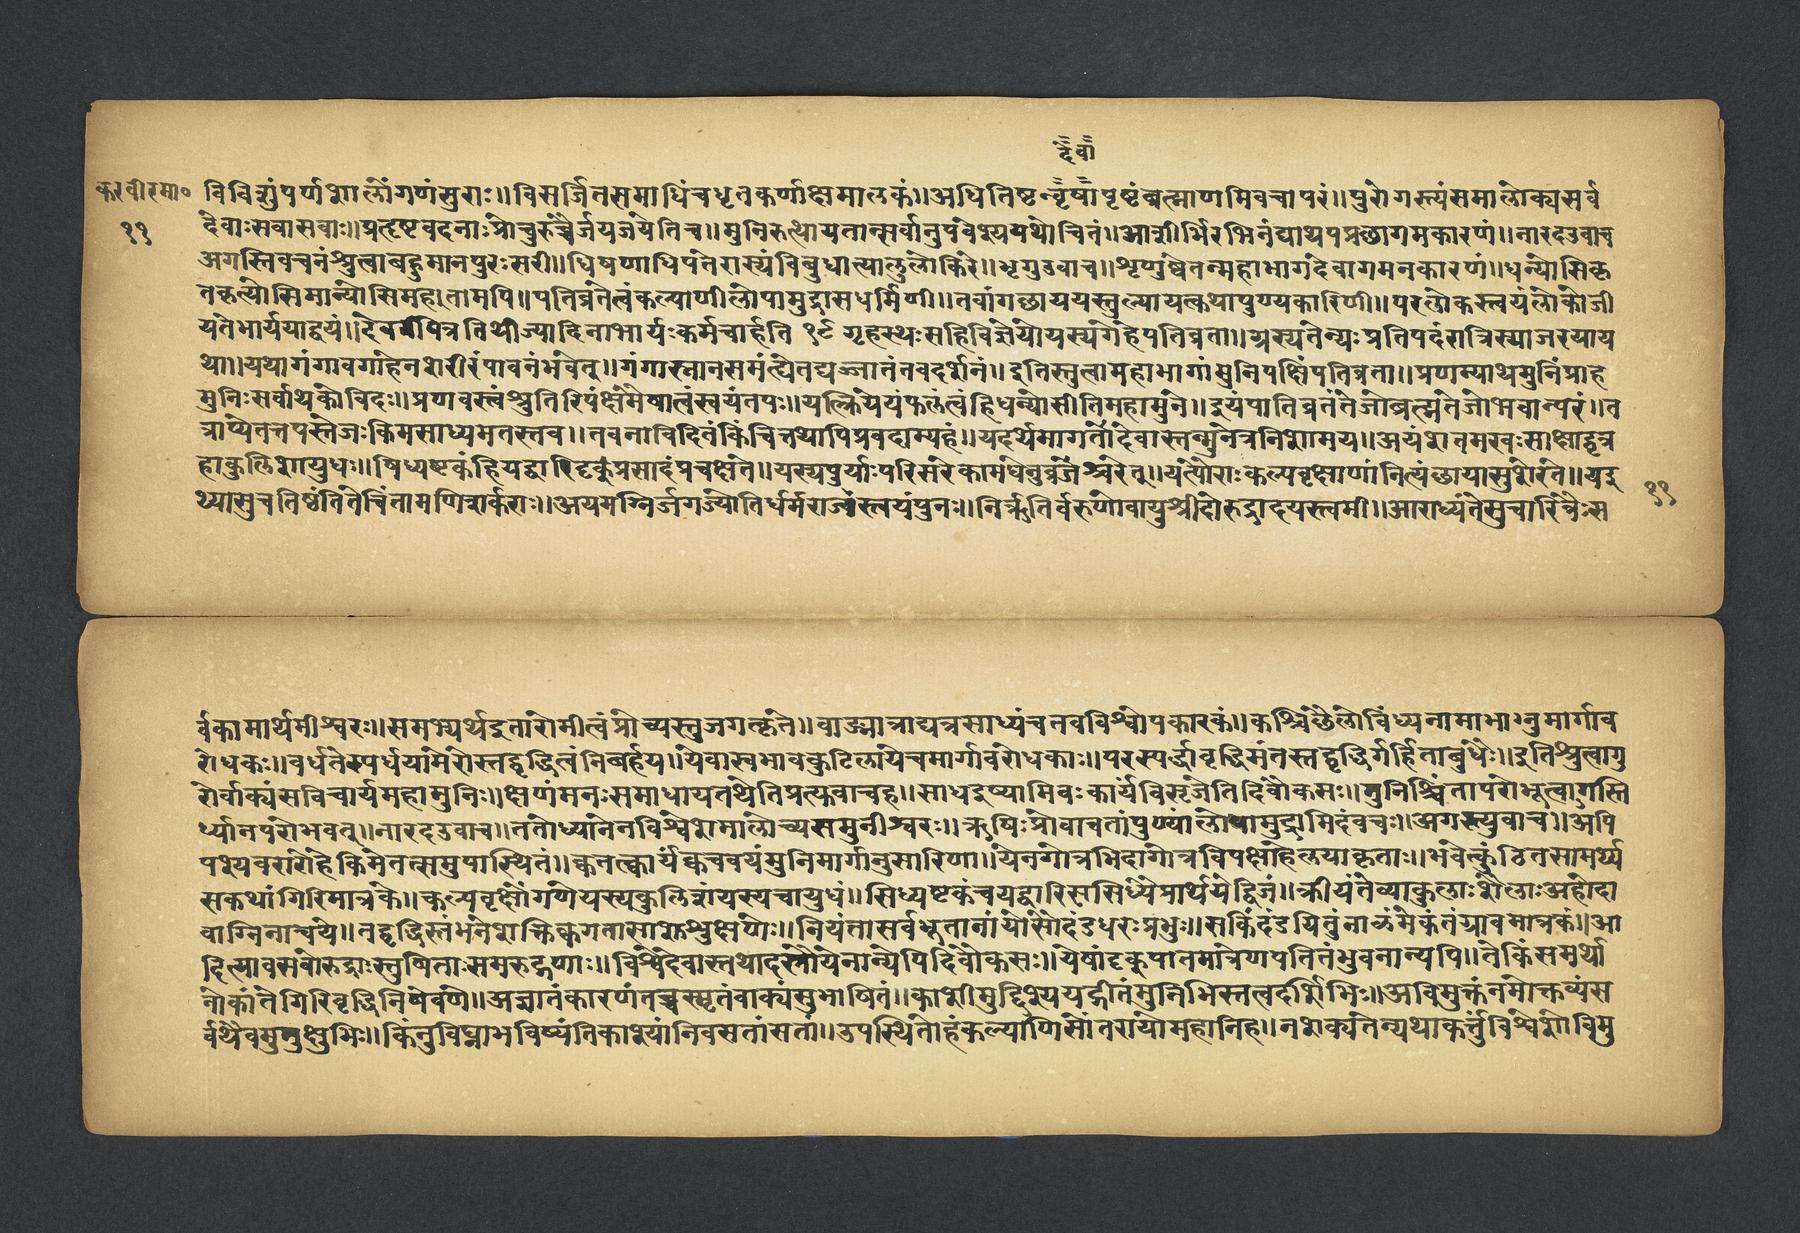 देवा
करवीरमा० विविशुः पर्णशालांगणंसुराः॥विसर्जितसमाधिंचधृतकर्णाक्षमालकं॥अधितिष्ठन्वृषापृष्टंब्रत्माणमिवचापरं॥पुरोगस्त्यंसमालोक्यसर्व
११ देवाःसवासवाः॥प्रत्दृष्टवदनाःप्रोचुरुच्चैर्जयजयेतिच॥मुनिरुत्थायतान्सर्वानुपवेश्ययथोचितं॥आशीर्भिरभिनंद्याथपप्रछागमकारणं॥नारदउवाच
अगस्तिवचनंश्रुत्वाबहुमानपुरःसरी॥धिषणाधिपतेरास्यंविबुधात्यालुलोकिरे॥भृगुउवाच॥शृणुष्वैतन्महाभागदेवागमनकारणं॥धन्योसिकृ
तकृत्योसिमान्योसिमहातामपि॥पतिव्रतेत्वंकल्याणीलोपामुद्रासधर्मिणी॥तवांगछाययस्तुल्यायत्कथापुण्यकारिणी॥परलोकस्त्वयंलोकोजी
यतेभार्ययाद्वयं॥देवर्षपित्रतिथीज्यादिनाभार्यःकर्मचार्हति १९ गृहस्थःसहिविज्ञेयोयस्यगेहेपतिव्रता॥ग्रस्यतेन्यःप्रतिपदंरात्रिस्याजरयाय
था॥यथागंगावगाहेनशरीरंपावनंभवेत्॥गंगास्नानसमंत्वेतद्यज्जातंतवदर्शनं॥इतिस्तुत्वामहाभागांमुनिपत्निंपतिव्रता॥प्रणम्याथमुनिंप्राह
मुनिःसर्वार्थकोविदः॥प्रणवस्त्वंश्रुतिरियंक्षमेषात्वंस्वयंतपः॥यत्क्रियेयंफलंत्वंहिधन्योसीतिमहामुने॥इयंपातिव्रतंतेजोब्रत्मतेजोभवान्परं॥त
त्राप्येतत्तपस्तेजःकिमसाध्यमतस्तव॥तवनाविदितंकिंचित्तथापिप्रवदाम्यहं॥यदर्थमागतादेवास्तन्मुनेत्रनिशामय॥अयंशतमखःसाक्षाद्वृत्र
हाकुलिशायुधः॥षिध्यष्टकंहियद्वारिदृक्प्रसादंप्रचक्षते॥यस्यपुर्याःपरिसरेकामधेनुव्रजेश्चरेत्॥यत्पौराःकल्पवृक्षाणांनित्यंछायासुशेरते॥यद्र
थ्यासुचतिष्ठंतितेचिंतामणिशर्कराः॥अयमग्निर्जगज्योतिर्धर्मराजंस्त्वयंपुनः॥निर्ऋतिर्वरुणोवायुश्रीदोरुद्रादयस्त्वमी॥आराध्यंतेसुचारित्रैःस ११
र्वकामार्थमीश्वरः॥समज्यर्थइतारोमीत्वंप्रोच्यस्तुजगत्कृते॥वाङ्मात्राद्यत्रसाध्यंचतवविश्वोपकारकं॥कश्चिछैलोविंध्यनामाभानुमार्गाव
रोधकः॥वर्धतेस्पर्धयामेरोस्तद्वृद्धित्वंनिबर्हय॥येवास्वभावकुटिलायेचमार्गावरोधकाः॥परस्पर्द्धावृद्धिमंतस्तद्वृद्धिर्गर्हिताबुधैः॥इतिश्रुत्वागु
रोर्वाक्यंसविचार्यमहामुनिः॥क्षणंमनःसमाधायतथेतिप्रत्यवाचह॥साधइष्यामिवःकार्यंविसृजेतिदिवोकसः॥मुनिश्चिंतापरोभूत्वागस्ति
र्ध्यानपरोभवत्॥नारदउवाच॥ततोध्यानेनविश्वेशमालोच्यसमुनीश्वरः॥ऋषिःप्रोवाचतांपुण्यांलोपामुद्रामिदंवचः॥अगस्त्युवाच॥अपि
पश्यवरारोहेकिमेतत्समुपास्थितं॥क्वतत्कार्यंक्वचवयंमुनिमार्गानुसारिणा॥येनगोत्रभिदागोत्रविपक्षाहेलयाकृताः॥भवेत्कुंठितसामर्थ्य
सकथांगिरिमात्रके॥कल्पवृक्षोंगणेयस्यकुलिशंयस्यचायुधं॥सिध्यष्टकंचयद्वारिससिध्येप्रार्थयेद्विजं॥क्रीयंतेव्याकुलाःशैलाःअहोदा
वाग्निनान्वये॥तद्वृद्धिस्तंभनेशक्तिक्वगतासाक्तश्रुक्षणेः॥नियंतासर्वभूतानांयोसोदंडधरःप्रभुः॥सकिंदंडयितुंनाळमेकंतंग्रावमात्रकं॥आ
दित्यावसवोरुद्राःस्तुषिताःसमरुद्गणाः॥विश्वेदेवास्तथादस्रोयेनान्येपिदिवोकसः॥येषांदृक्पातमात्रेणपतितंभुवनान्यपि॥तेकिंसमर्था
नोकांतेगिरिवृद्धिनिषेवणे॥अज्ञातंकारणंतच्चस्मृतंवाक्यंसुभाषितं॥काशीमुद्दिश्ययद्गीतंमुनिभिस्तत्वदर्शिभिः॥अविमुक्तंनमोक्तव्यंस
र्वथैवमुमुक्षुभिः॥किंनुविघ्नाभविष्यंतिकाश्यांनिवसतांसतां॥उपस्थितोहंकल्याणिसोंतरायोमहानिह॥नशक्यतेन्यथाकर्तुंविश्वेशोविमु